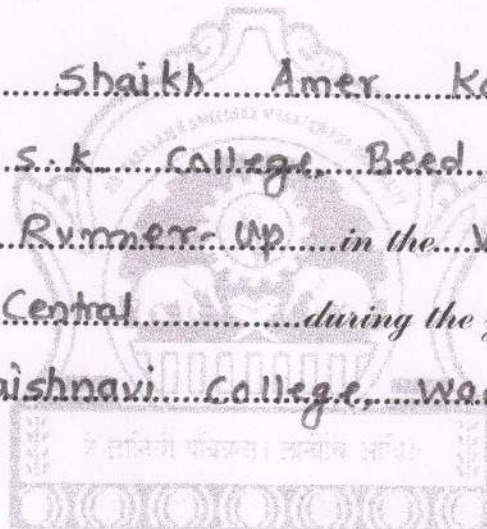 Shaikh Amer Ka
s.k. College, Beed
Runner-Up in the
Central during the
aishnavi College, wa